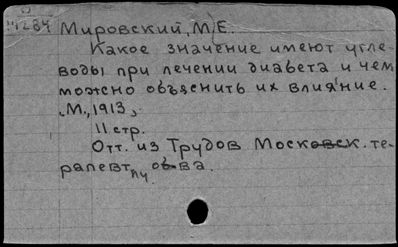 11284 Мировский, М.Е.
Какое значение имеют угле-
воды при лечении диабета и чем
можно объяснить их влияние.
М., 1913,
11 стр.
Отт. из Трудов Московск. те-
рапевт. об-ва.